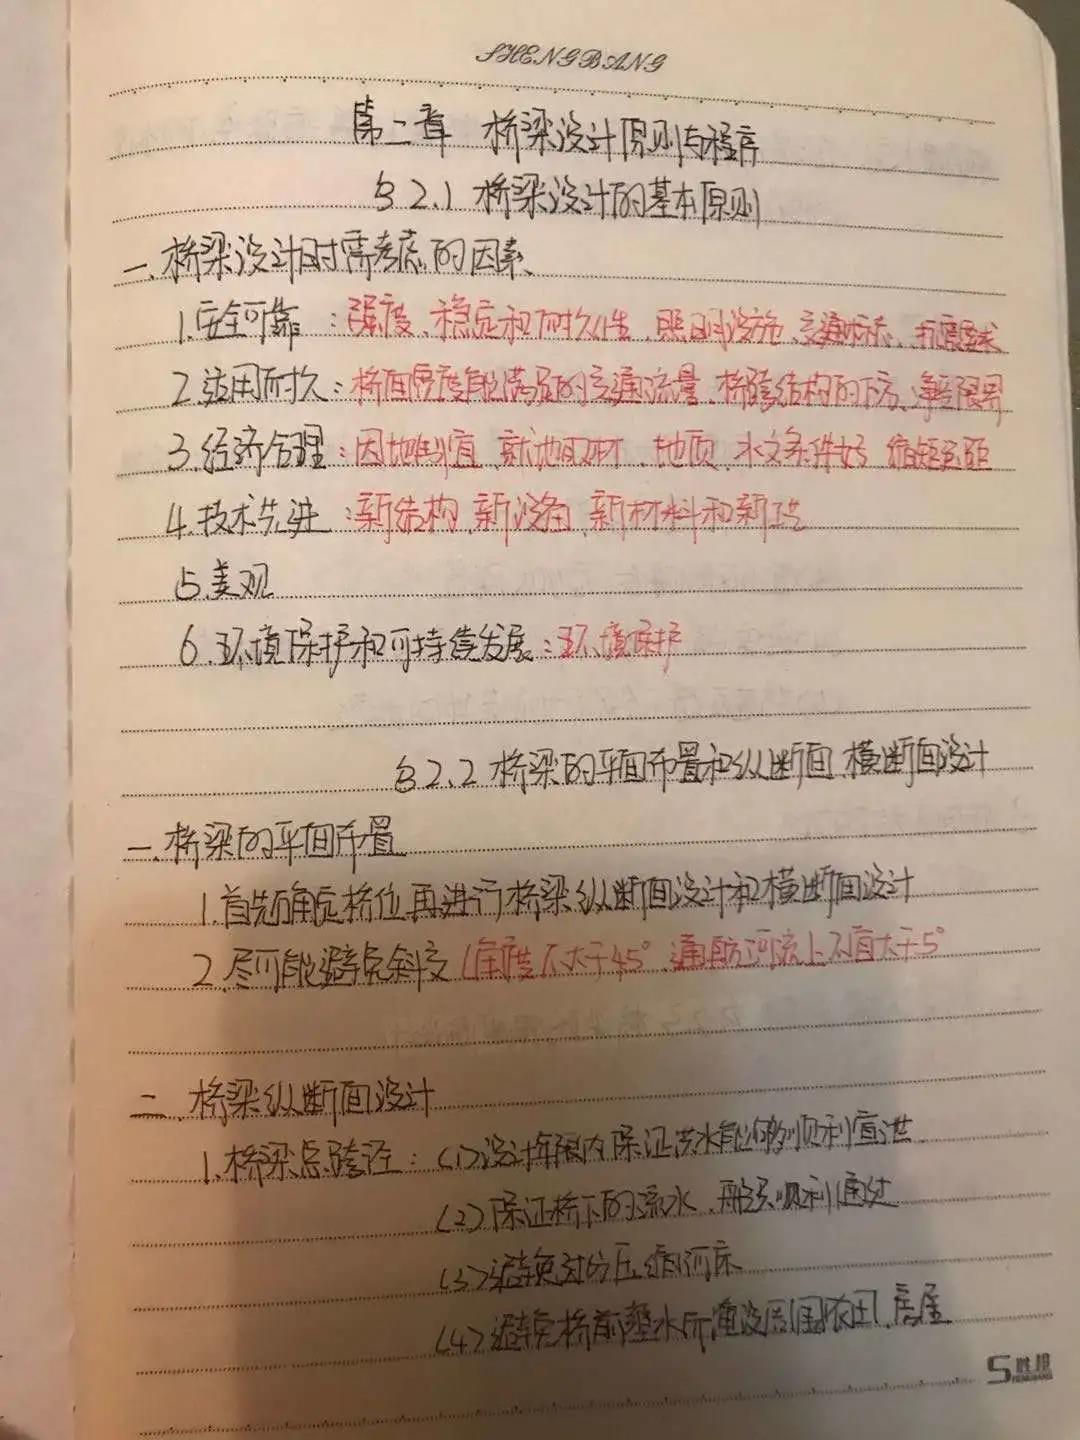 SHENGBANG
第二章 桥梁设计原则与程序
§2.1 桥梁设计的基本原则
一、桥梁设计时需考虑的因素
1.安全可靠：强度、稳定和耐久性、照明设施、交通标志、抗震要求
2.适用耐久：桥面宽度能满足的交通流量、桥跨结构的下方、净空限界
3.经济合理：因地制宜、就地取材、地质、水文条件好 缩短运距
4.技术先进：新结构、新设备、新材料和新工艺
5.美观
6.环境保护和可持续发展：环境保护
§2.2 桥梁的平面布置和纵断面、横断面设计
一、桥梁的平面布置
1.首先确定桥位,再进行桥梁纵断面设计和横断面设计
2.尽可能避免斜交（角度不大于45°,通航河流上不宜大于5°
二、桥梁纵断面设计
1.桥梁总跨径：(1)设计年限内保证洪水能够顺利宣泄
(2)保证桥下的流水、船只顺利通过
(3)避免过分压缩河床
(4)避免桥前壅水所淹没周围农田、房屋
胜邦
SHENGBANG